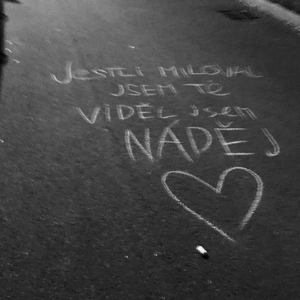 JESTLI MILOVAL
JSEM TE
VIDĚL jsem
NADĚJ